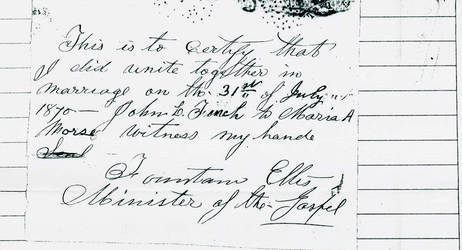 This is to certify that
I did unite together in
marriage on the 31st of July
1870 — John L. Finch to Maria A
Morse witness my hande
Seal
Fountain Ellis
Minister of the Gospel